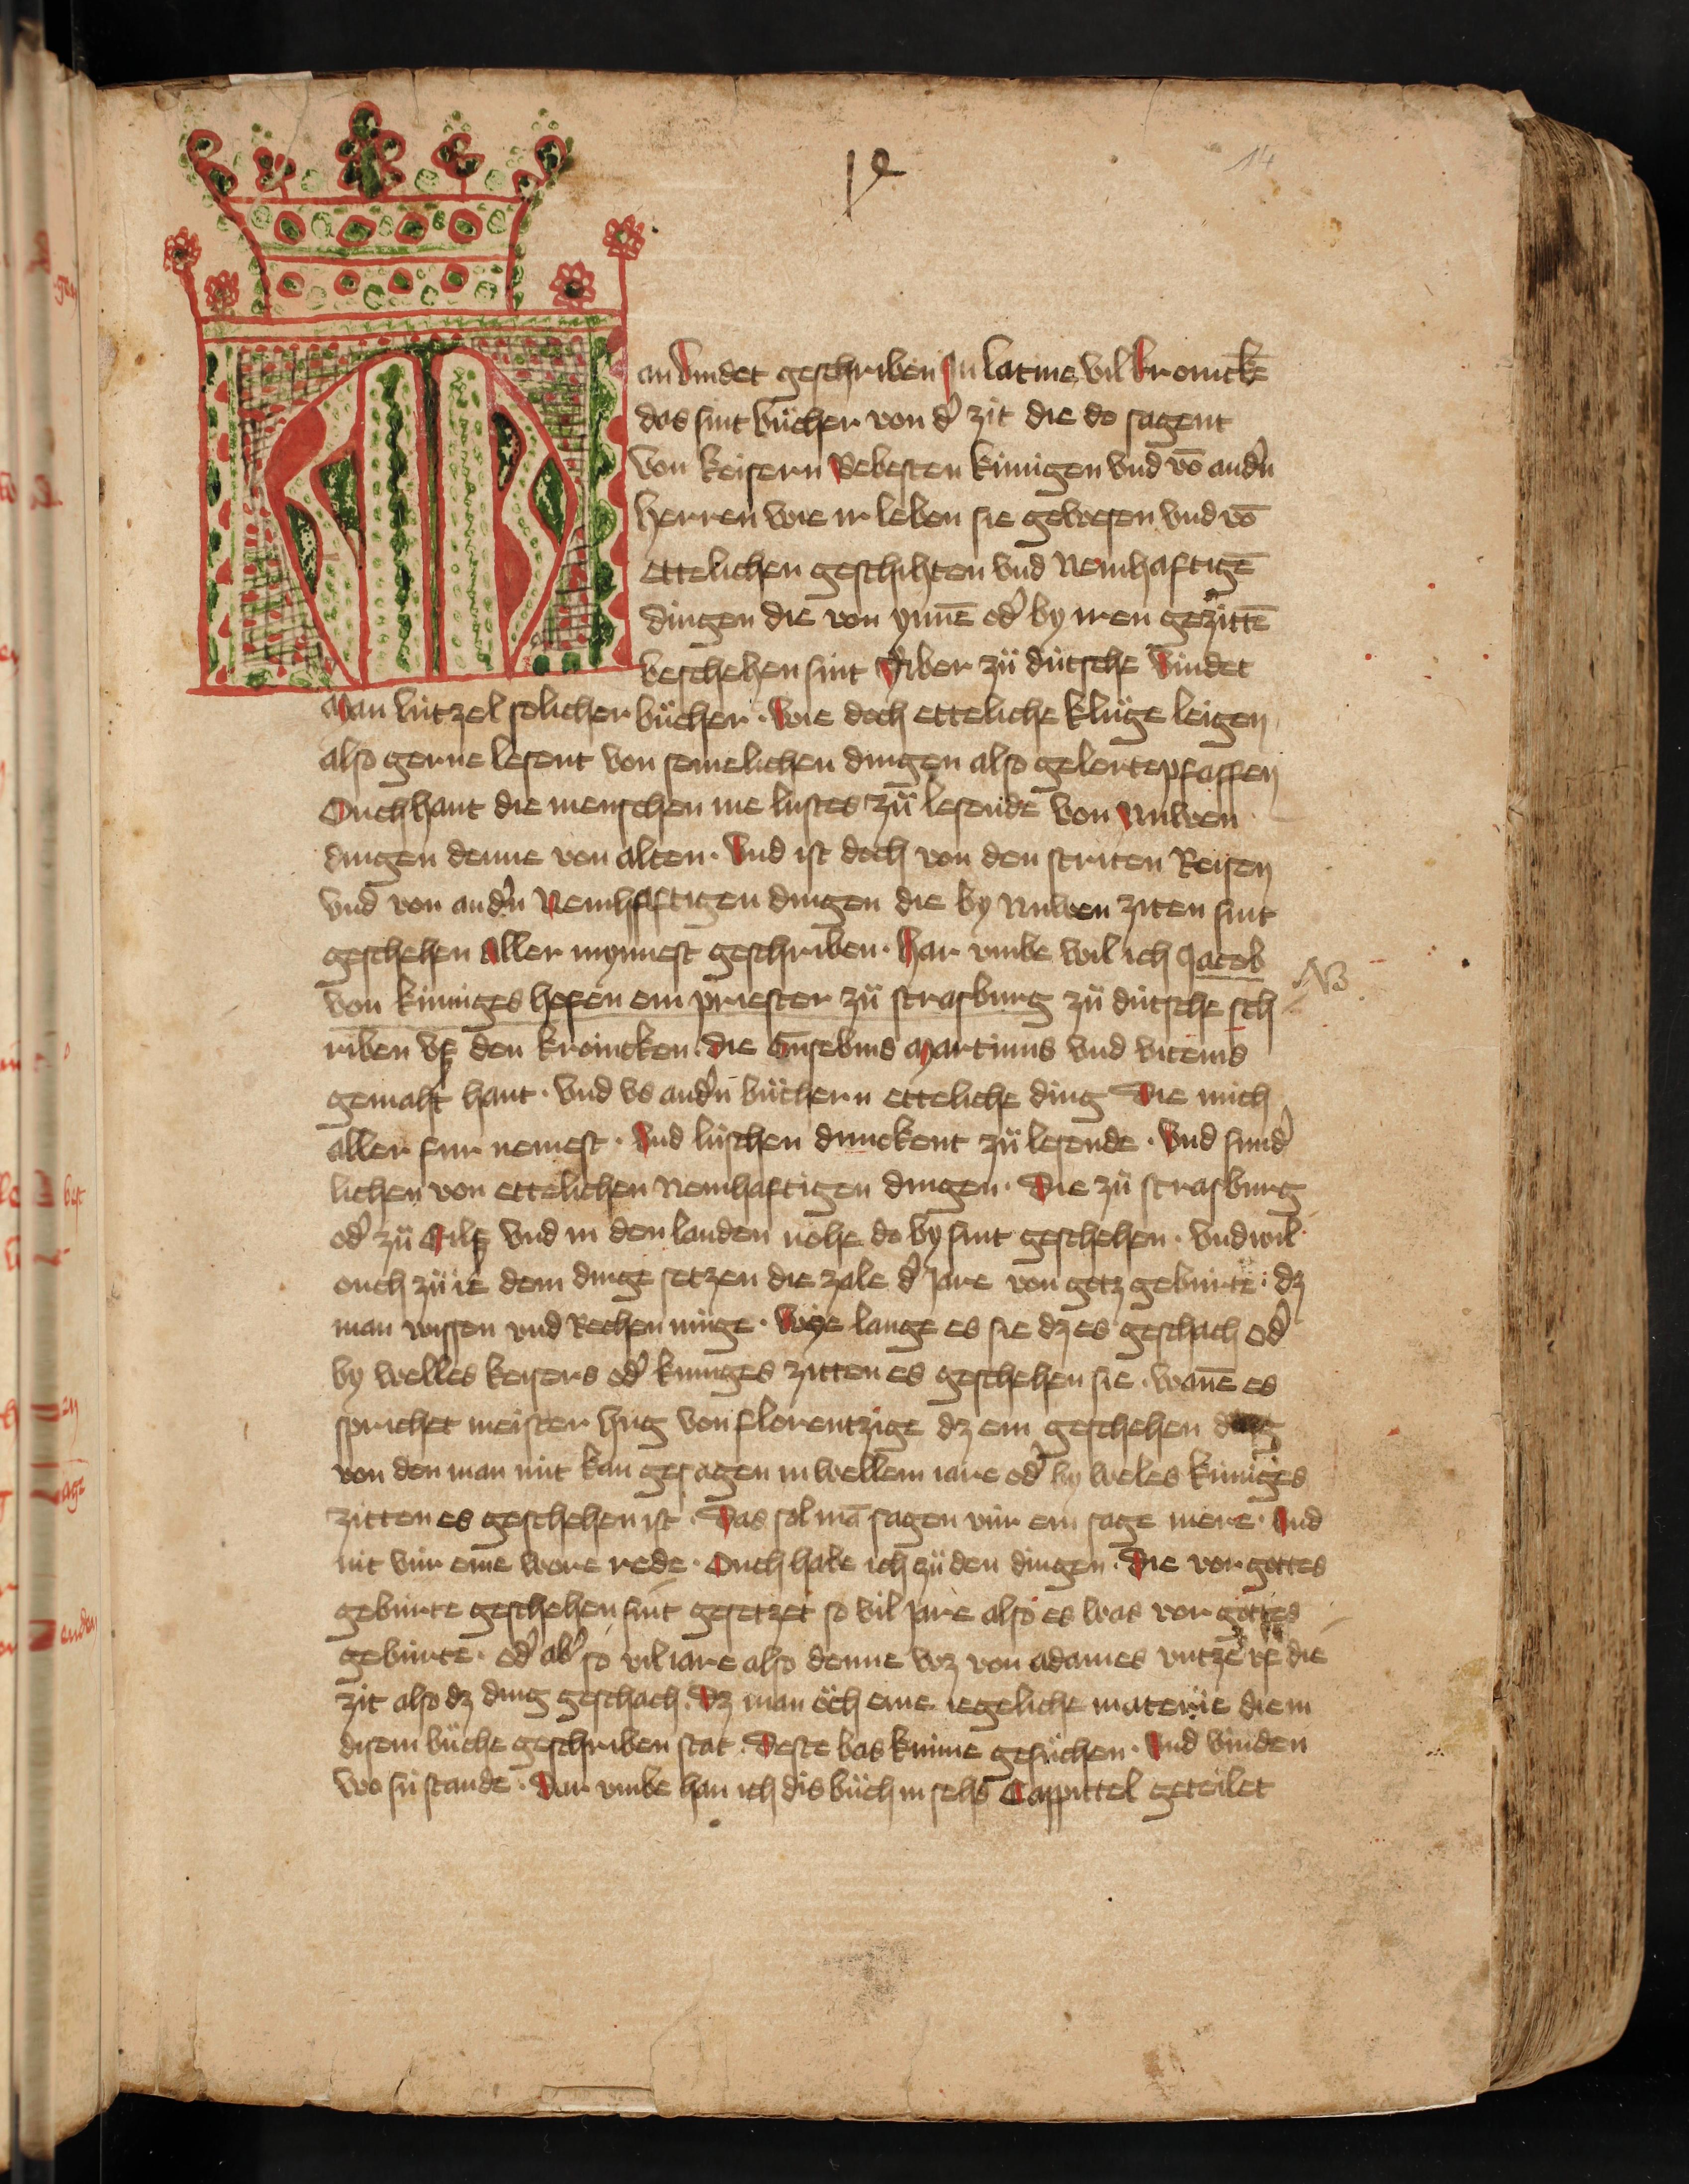 14
Man vindet geschriben In latine vil kronick̄
das sint bücher von d' zit die do sagent
von keisern Bebesten künigen vnd vō and'n
herren wie ir leben sie gewesen vnd vō
ettelichen geschihten vnd Nemhaftigē
dingen die von ynnē od' by iren gezittē
beschehen sint Aber zü dütsche vindet
Man lützel solicher bücher · wie doch etteliche klüge leigen
also gerne lesent von semelichen dingen also gelerte pfaffen
Ouch hant die menschen me lustes zü lesende von Nuwen
dingen denne von alten · Vnd ist doch von den striten Reisen
vnd von and'n Nemhaftigen dingen die by Nuwen ziten sint
geschehen Aller mynnest geschriben · Har vmbe wil ich Jacob
NB
von künniges hofen ein priester zü strasburg zü dütsche sch
riben vß den kronicken · die Eusebius Martinus vnd vitenis
gemaht hant · vnd vs and'n büchern etteliche ding Die mich
aller fur nemest · Vnd lüschen dunckent zü lesende · Vnd sund'
lichen von ettelichen Nemhaftigen dingen · Die zü strasburg
od' zü Eilsß vnd in den landen nohe do by sint geschehen · vnd wil
ouch zü ie dem dinge setzen die zale d' Jare von getz gebürte · dz
man wissen vnd Rechen müge · Wye lange es sie dz es geschach od'
by welles keisers od' küniges zitten es geschehen sie · wanē es
sprichet meister hug von florentzige dz ein geschehen ding
von den man nüt kan gesagen in wellem iare od' by weles küniges
zitten es geschehen ist · Das sol mā sagen vür ein sage mere · Vnd
nit vür eine wore rede · Ouch habe ich zü den dingen · Die vor gottes
gebürte geschehen sint gesetzet so vil Jare also es was vor gottes
gebürte · od' ab' so vil iare also denne wz von adames vntze vf die
zit also dz ding geschach · Dz man öch eine iegeliche materie die in
disem büche geschriben stat · Deste bas künne gesüchen · Vnd vinden
wo sü stande · Dar vmbe han ich dis büch in sehs Cappittel geteilet